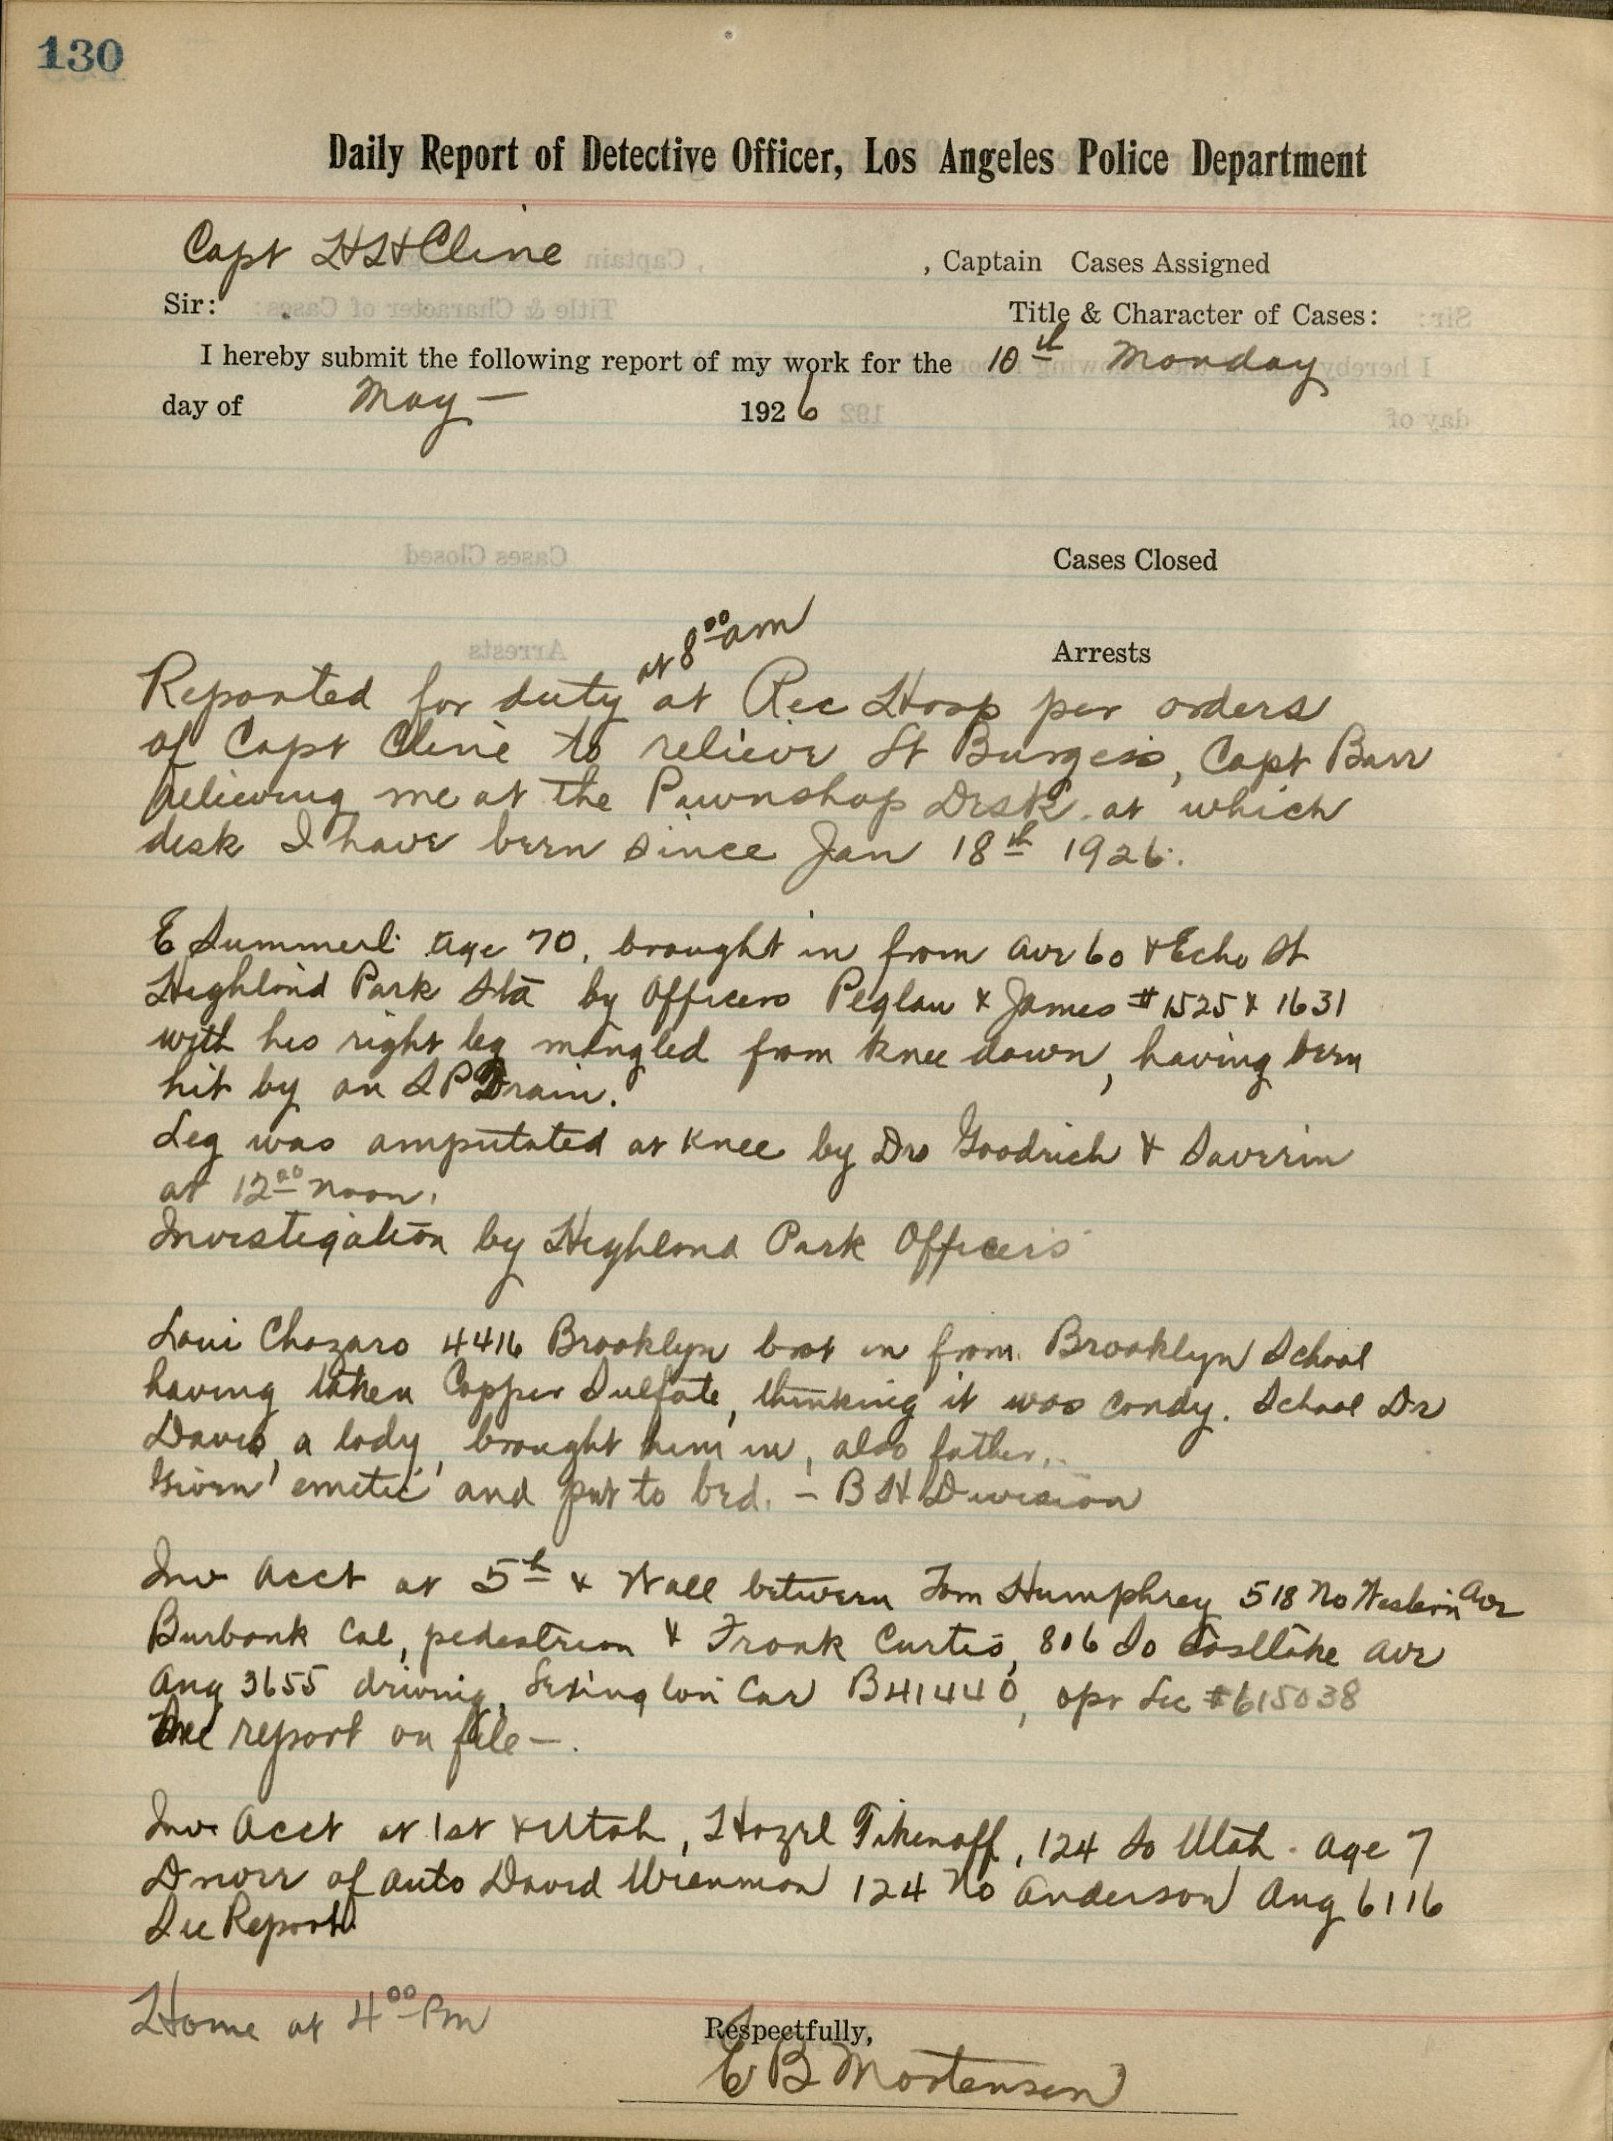 130
Daily Report of Detective Officer, Los Angeles Police Department
Capt HH Cline , Captain Cases Assigned
Sir: Title & Character of Cases:
I hereby submit the following report of my work for the 10th Monday
day of May — 1926
Cases Closed
Arrests
at 800 am
Reported for duty at Rec Hosp per orders
of Capt Cline to relieve Lt Burgess, Capt Barr
relieving me at the Pawnshop Desk. at which
desk I have been since Jan 18th 1926.
E Summerl age 70, brought in from Ave 60 & Echo St
Highland Park Sta by Officers Peglau & James # 1525 & 1631
with his right leg mangled from knee down, having been
hit by an S P Train.
Leg was amputated at knee by Drs Goodrich &
at 1200 noon.
Investigation by Highland Park Officers
Loui Chazaro 4416 Brooklyn brot in from Brooklyn School
having taken Copper Sulfate, thinking it was candy. School Dr
Davis, a lady, brought him in, also father.
Given emetic and put to bed. — B H Division
Inv Acct at 5th & Wall between Tom Humphrey 518 No Western Ave
Burbank Cal, pedestrian & Frank Curtis, 806 So Eastlake Ave
Ang 3655 driving Lexington Car B41440, opr Lic # 615038
See report on file —.
Inv Acct at 1st & Utah, Hazel Tikenoff, 124 So Utah. age 7
Driver of auto David 124 No Anderson Ang 6116
See Report.
Home at 4 00 Pm
Respectfully,
C B Mortensen